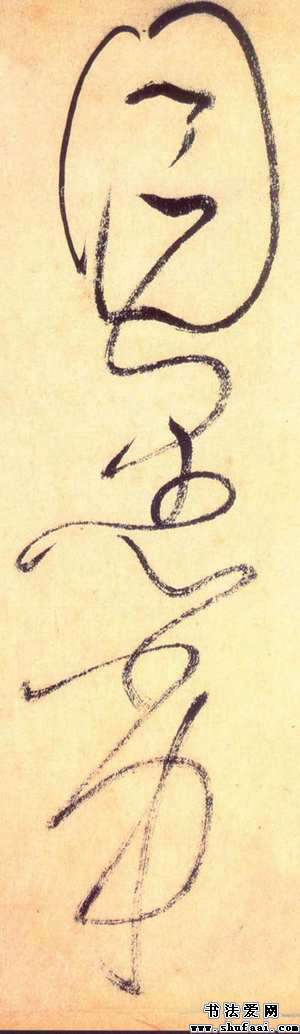 目愚劣
书法爱网
www.shufaai.com